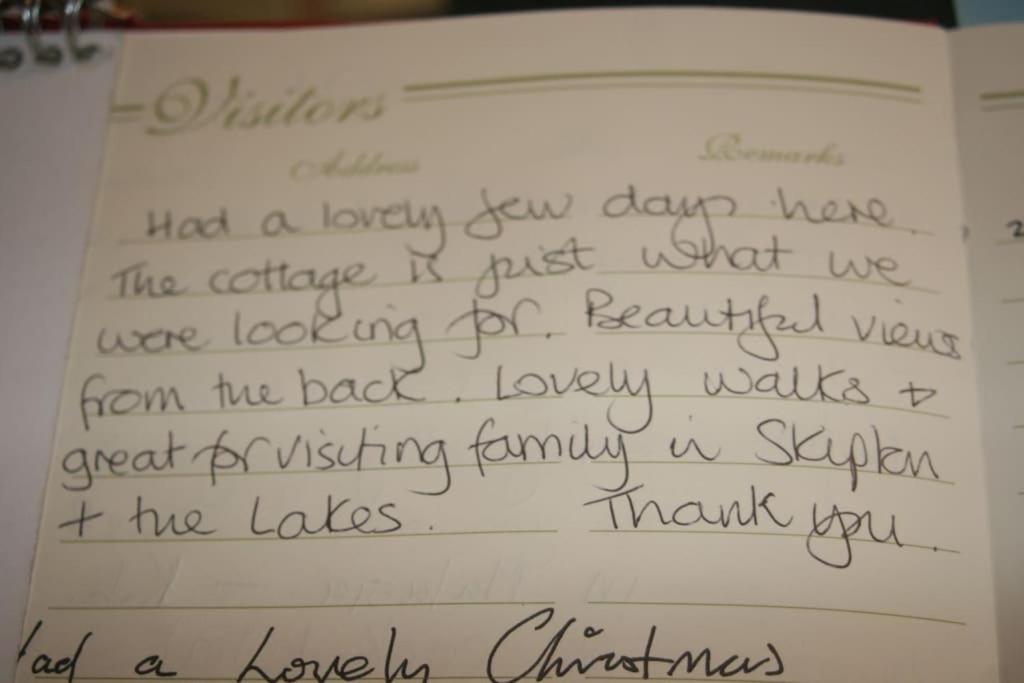 Visitors
Address Remarks
Had a lovely few days here.
The cottage is just what we
were looking for. Beautiful views
from the back. Lovely walks +
great for visiting family in Skipton
+ the Lakes. Thank you.
Had a Lovely Christmas
2